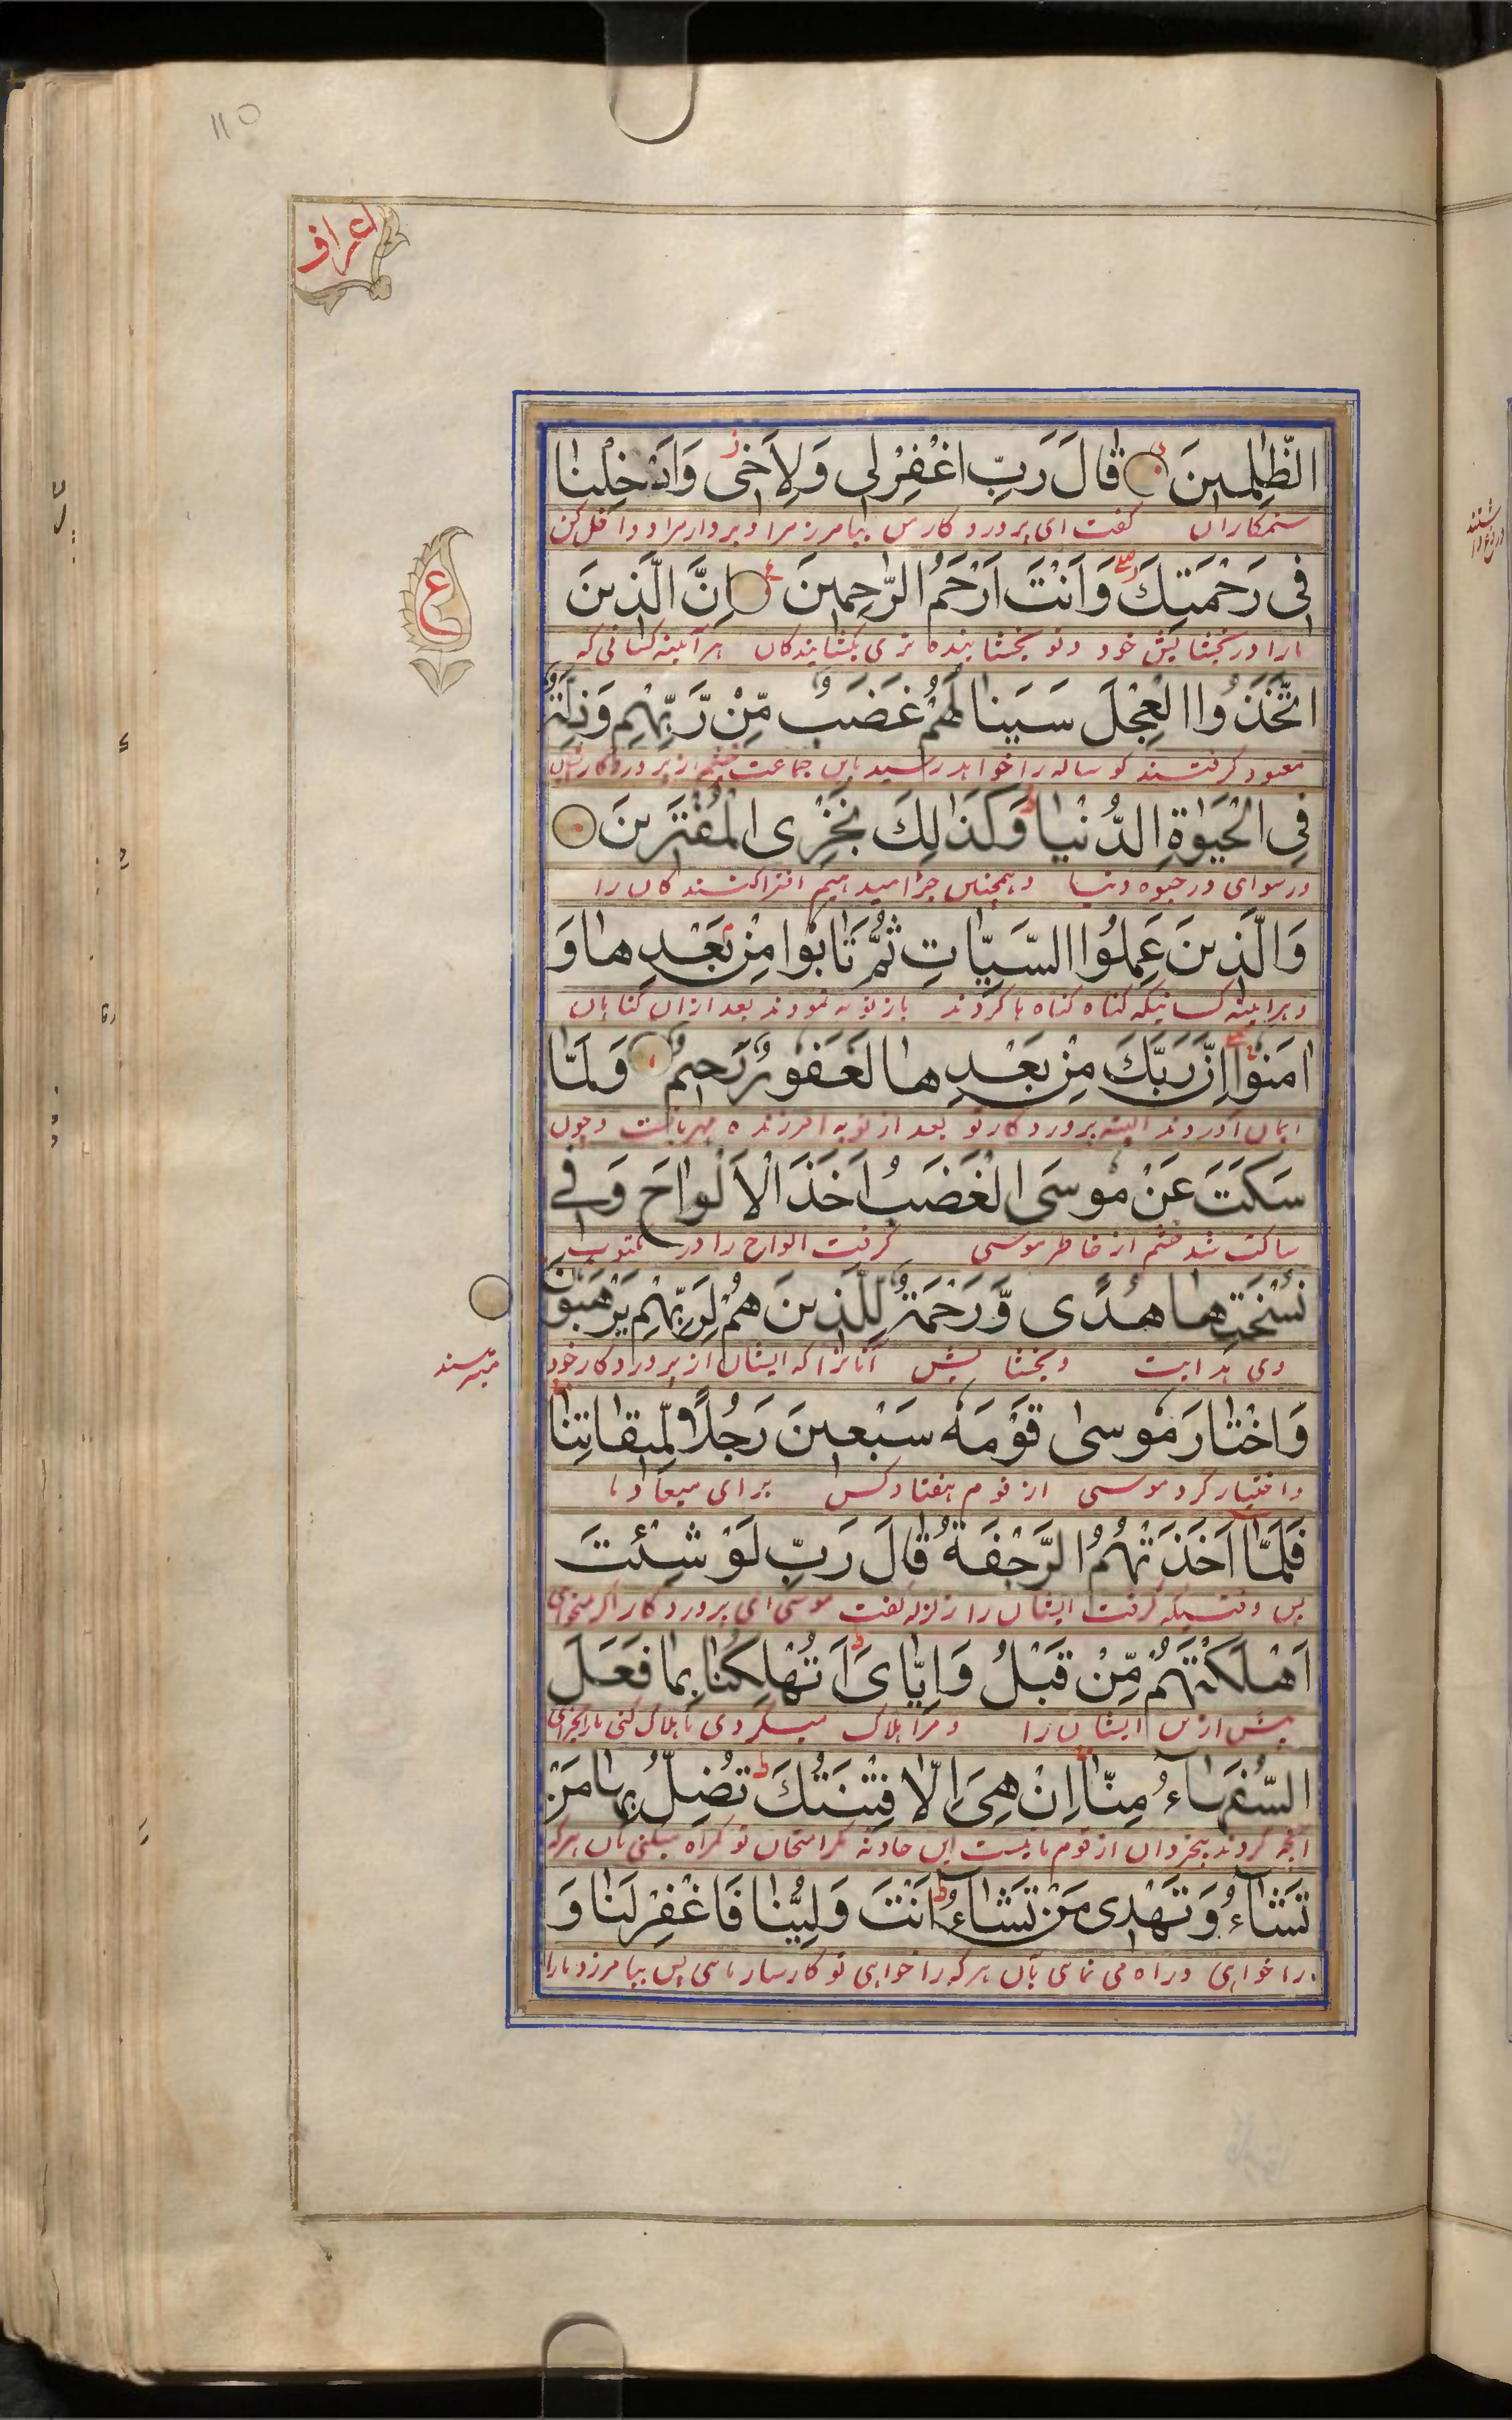 110
اعراف
الظّٰلِمِينَ قَالَ رَبِّ اغْفِرْلِى وَلِاَخِى وَاَدْخِلْنَا
ستمکاران گفت ای پروردگار من بیامرز مرا و برادر مرا و داخل کن
فِى رَحْمَتِكَ وَاَنْتَ اَرْحَمُ الرّٰحِمِينَ اِنَّ الَّذِينَ
ما را در بخشایش خود و تو بخشاینده تری بخشایندگان هر آیینه کسانی که
ع
اتَّخَذُوا الْعِجْلَ سَيَنَالُهُمْ غَضَبٌ مِّنْ رَّبِّهِمْ وَذِلَّةٌ
معبود گرفتند گوساله را خواهد رسید باین جماعت خشم از پروردگار ایشان
فِى الْحَيٰوةِ الدُّنْيَا وَكَذٰلِكَ نَجْزِى الْمُفْتَرِينَ
و رسوای در حیوه دنیا و همچنین جزا میدهیم افترا کنندگان را
وَالَّذِينَ عَمِلُوا السَّيِّاٰتِ ثُمَّ تَابُوا مِنْ بَعْدِهَا وَ
و هر آیینه کسانیکه گناه گناه ها کردند باز توبه نمودند بعد از ان گناهان
اٰمَنُوا اِنَّ رَبَّكَ مِنْ بَعْدِهَا لَغَفُورٌ رَّحِيمٌ وَلَمَّا
ایمان آوردند البته پروردگار تو بعد از توبه امرزنده مهربانست و چون
سَكَتَ عَنْ مُوسَى الْغَضَبُ اَخَذَ الْاَلْوَاحَ وَفِى
ساکت شد خشم از خاطر موسی گرفت الواح را و در مکتوب
نُسْخَتِهَا هُدًى وَّرَحْمَةٌ لِّلَّذِينَ هُمْ لِرَبِّهِمْ يَرْهَبُونَ
وی هدایت و بخشایش آنانرا که ایشان از پروردگار خود
میترسند
وَاخْتَارَ مُوسٰى قَوْمَهٗ سَبْعِينَ رَجُلًا لِّمِيقَاتِنَا
و اختیار کرد موسی از قوم هفتاد کس برای میعاد ما
فَلَمَّا اَخَذَتْهُمُ الرَّجْفَةُ قَالَ رَبِّ لَوْ شِئْتَ
پس وقتیکه گرفت ایشان را زلزله گفت موسی ای پروردگار اگر میخواهی
اَهْلَكْتَهُمْ مِّنْ قَبْلُ وَاِيَّاىَ اَتُهْلِكُنَا بِمَا فَعَلَ
پیش ازین ایشان را و مرا هلاک میکردی
السُّفَهَاءُ مِنَّا اِنْ هِىَ اِلَّا فِتْنَتُكَ تُضِلُّ بِهَا مَنْ
آنچه کردند بیخردان از قوم ما نیست این حادثه مگر امتحان تو گمراه میکنی بآن هرکه
تَشَاءُ وَتَهْدِى مَنْ تَشَاءُ اَنْتَ وَلِيُّنَا فَاغْفِرْ لَنَا وَ
را خواهی و راه می نمای بآن هرکه را خواهی تو کارساز مای پس بیامرز ما را